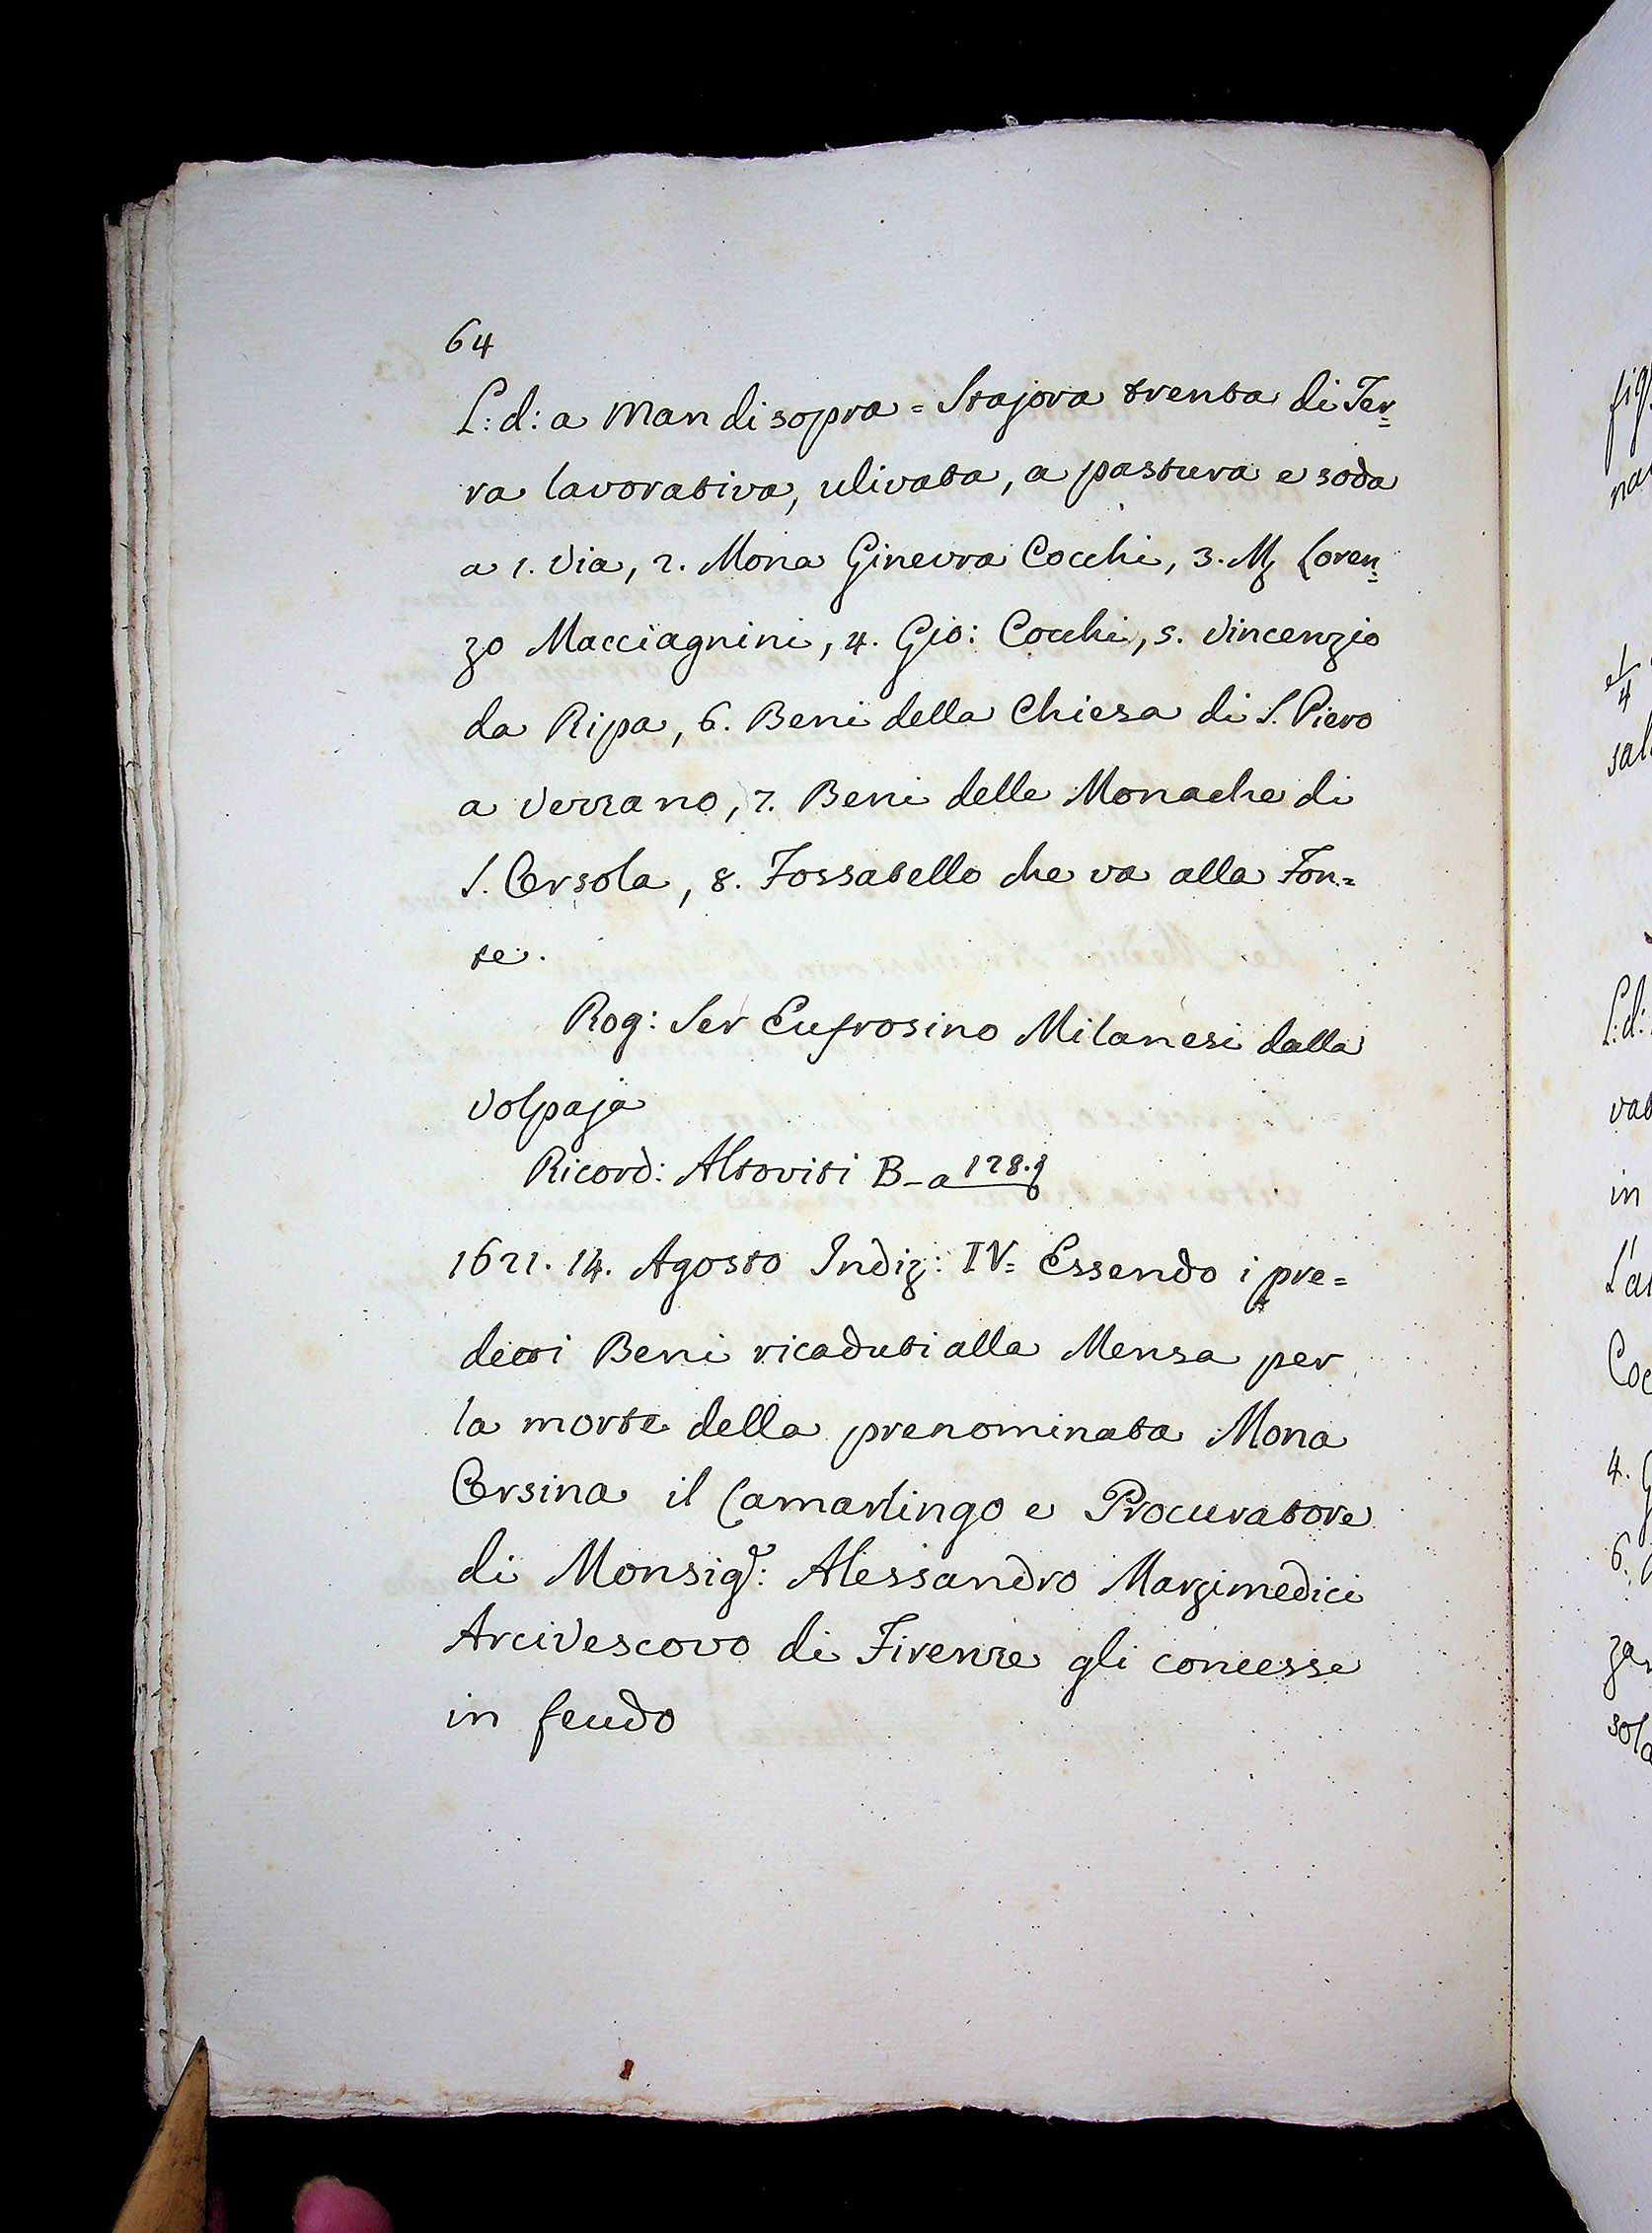 64
L: d: a Man di sopra = Stajora trenta di Ter=
ra lavorativa, ulivata, a pastura e soda
a 1. Via, 2. Mona Ginevra Cocchi, 3. Mz Loren=
zo Macciagnini, 4. Gio: Cocchi, 5. Vincenzio
da Ripa, 6. Beni della Chiesa di S. Piero
a Verrano, 7. Beni delle Monache di
S. Orsola, 8. Fossatello che va alla Fon=
te.
Rog: Ser Eufrosino Milanesi dalla
Volpaja
Ricord: Altoviti B_a 128.
1621. 14. Agosto Indiz: IV= Essendo i pre=
detti Beni ricaduti alla Mensa per
la morte della prenominata Mona
Orsina il Camarlingo e Procuratore
di Monsigr: Alessandro Marzimedici
Arcivescovo di Firenze gli concesse
in feudo